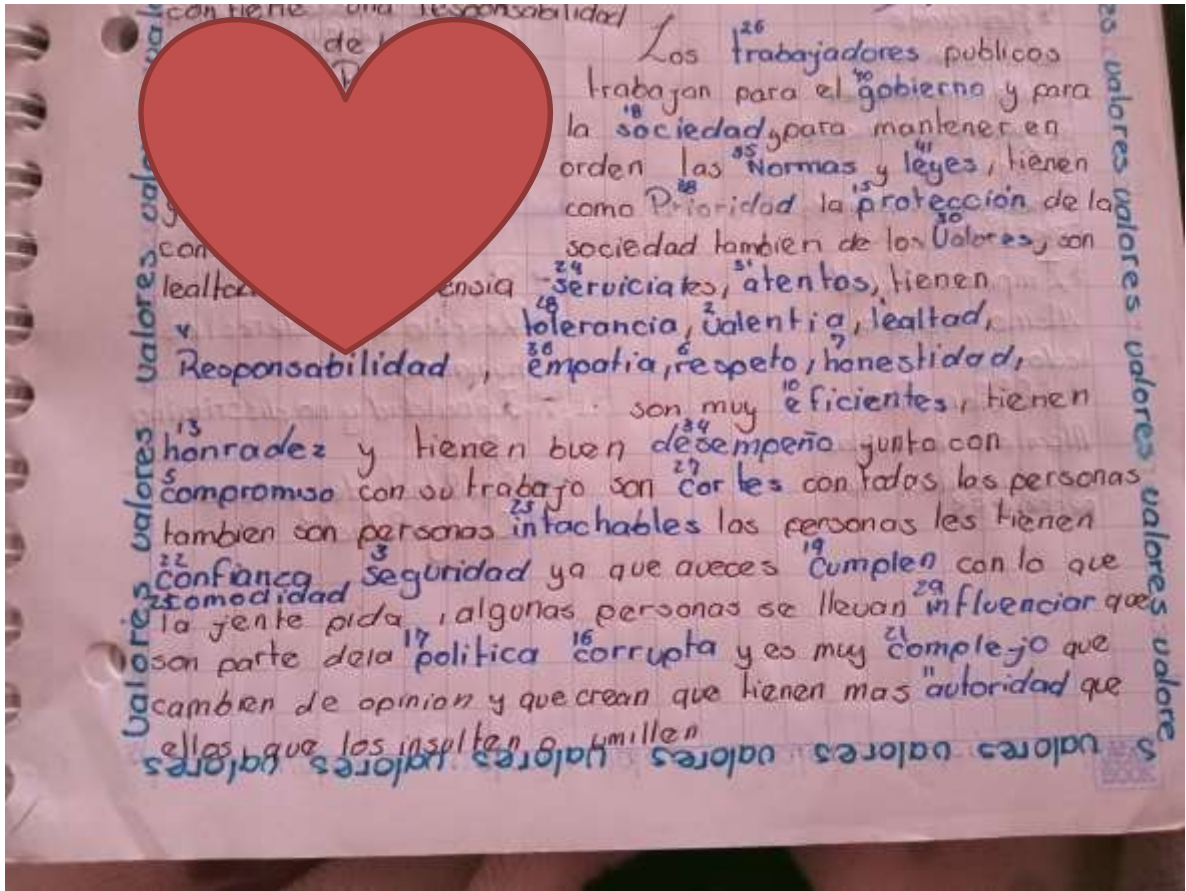 contiene una responsabilidad
de
Los trabajadores publicos
trabajan para el gobierno y para
la sociedad, para mantener en
orden las Normas y leyes, tienen
como Prioridad la protección de la
con sociedad tambien de los Valores, son
serviciales, atentos, tienen
tolerancia, valentia, lealtad,
Responsabilidad, empatia, respeto, honestidad,
son muy eficientes, tienen
honradez y tienen buen desempeño junto con
compromiso con su trabajo son cortes con todas las personas
tambien son personas intachables las personas les tienen
confianca, seguridad ya que aveces cumplen con lo que
comodidad
la jente pida, algunas personas se llevan influenciar que
son parte dela politica corrupta y es muy complejo que
cambien de opinion y que crean que tienen mas autoridad que
ellos, que los insulten o umillen
valores valores valores valores valores valores
valores valores valores valores
valores valores valores valores valores